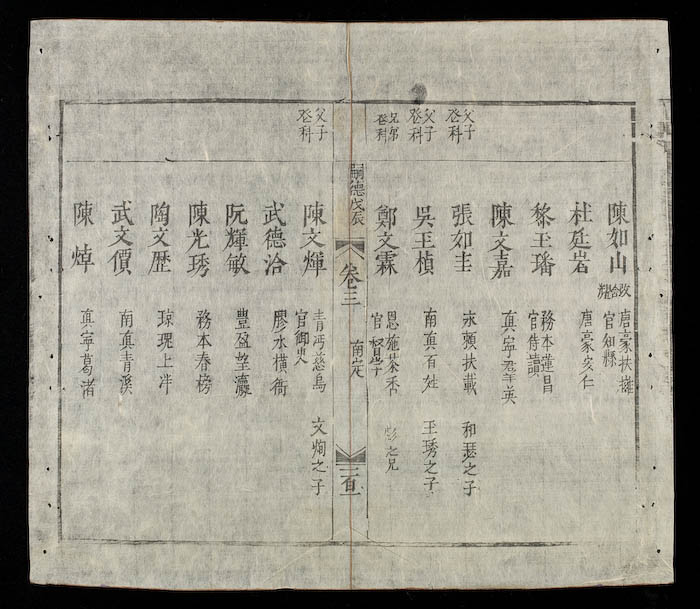 陳如山 改 唐豪扶擁
官知縣
杜廷岩 唐豪安仁
黎玉璠 務本蓮昌
官侍讀
陳文嘉 真寧羣英
父子
登科
張如圭 扶載 和瑟之子
父子
登科
吳玉楨 南真百姓 玉琇之子
兄弟
登科
鄭文霖 恩施茶香
官督學 彭之兄
嗣德戊辰
卷三 南定 三百
父子
登科
陳文煇 青沔慈烏 文炯之子
官御史
武德洽 膠水橫衙
阮輝敏 豐盈望瀛
陳光琇 務本春榜
陶文歷 琼琨上泮
武文價 南真青溪
陳焯 真寧葛渚